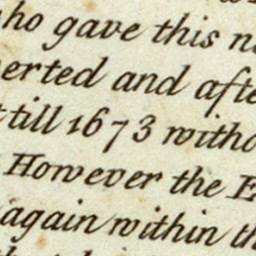 who gave this
erted and afte
till 1673 witho
However the E
again within th